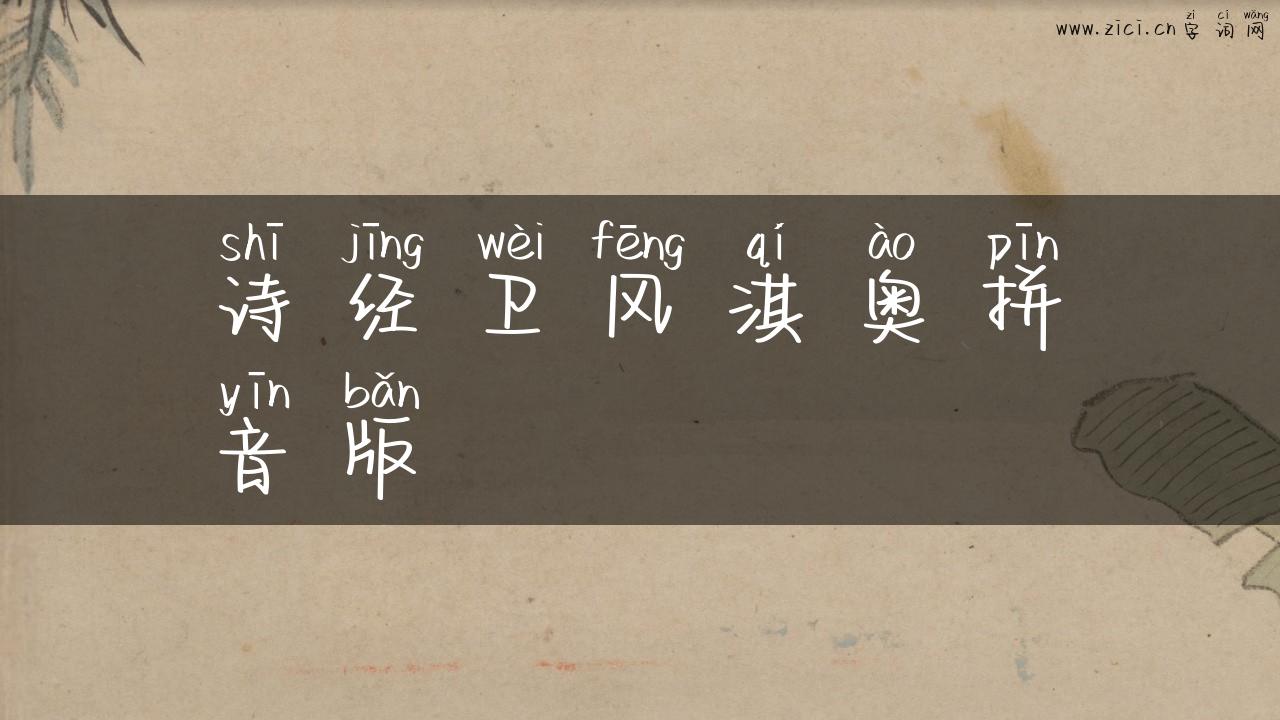 zì cí wǎng
www.zici.cn 字 词 网
shī jīng wèi fēng qí ào pīn
诗 经 卫 风 淇 奥 拼
yīn bǎn
音 版